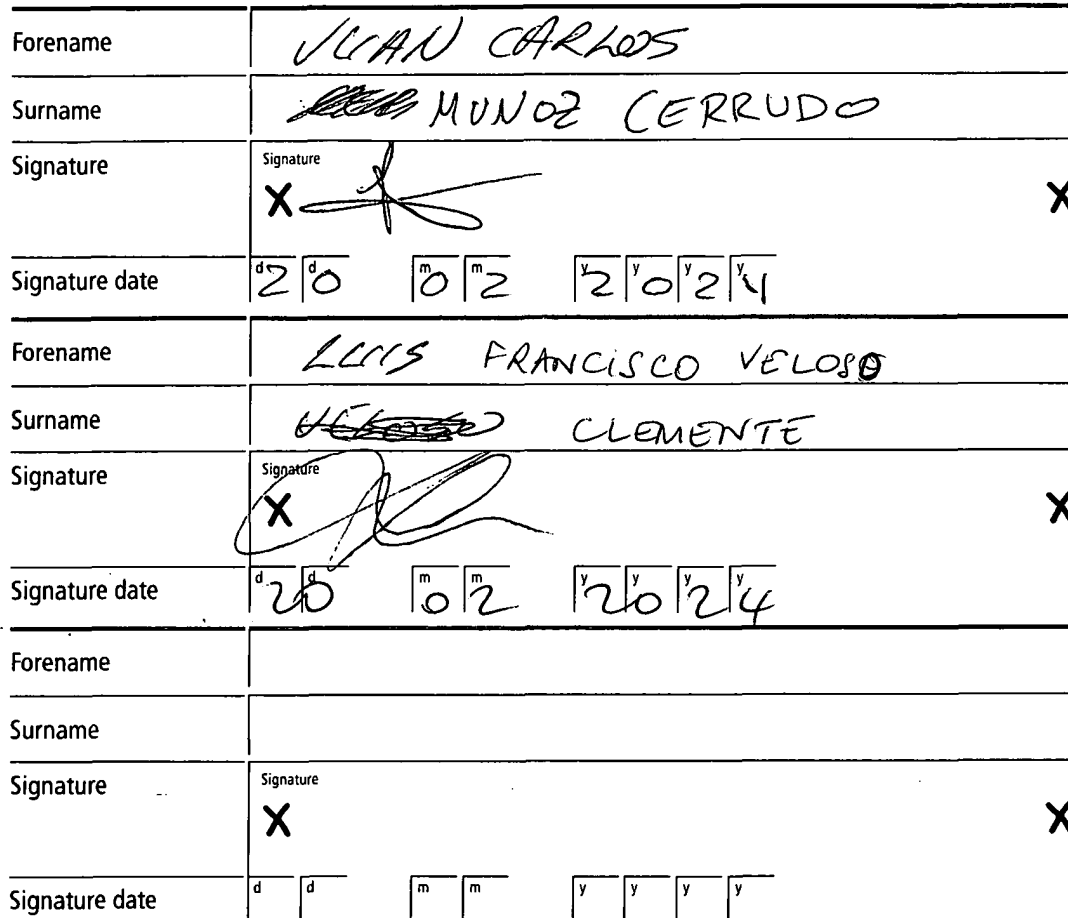 Forename JUAN CARLOS
Surname MUNOZ CERRUDO
Signature Signature
X X
Signature date d2 d0 m0 m2 y2 y0 y2 y4
Forename LUIS FRANCISCO VELOSO
Surname CLEMENTE
Signature Signature
X X
Signature date d2 d0 m0 m2 y2 y0 y2 y4
Forename
Surname
Signature Signature
X X
Signature date d d m m y y y y